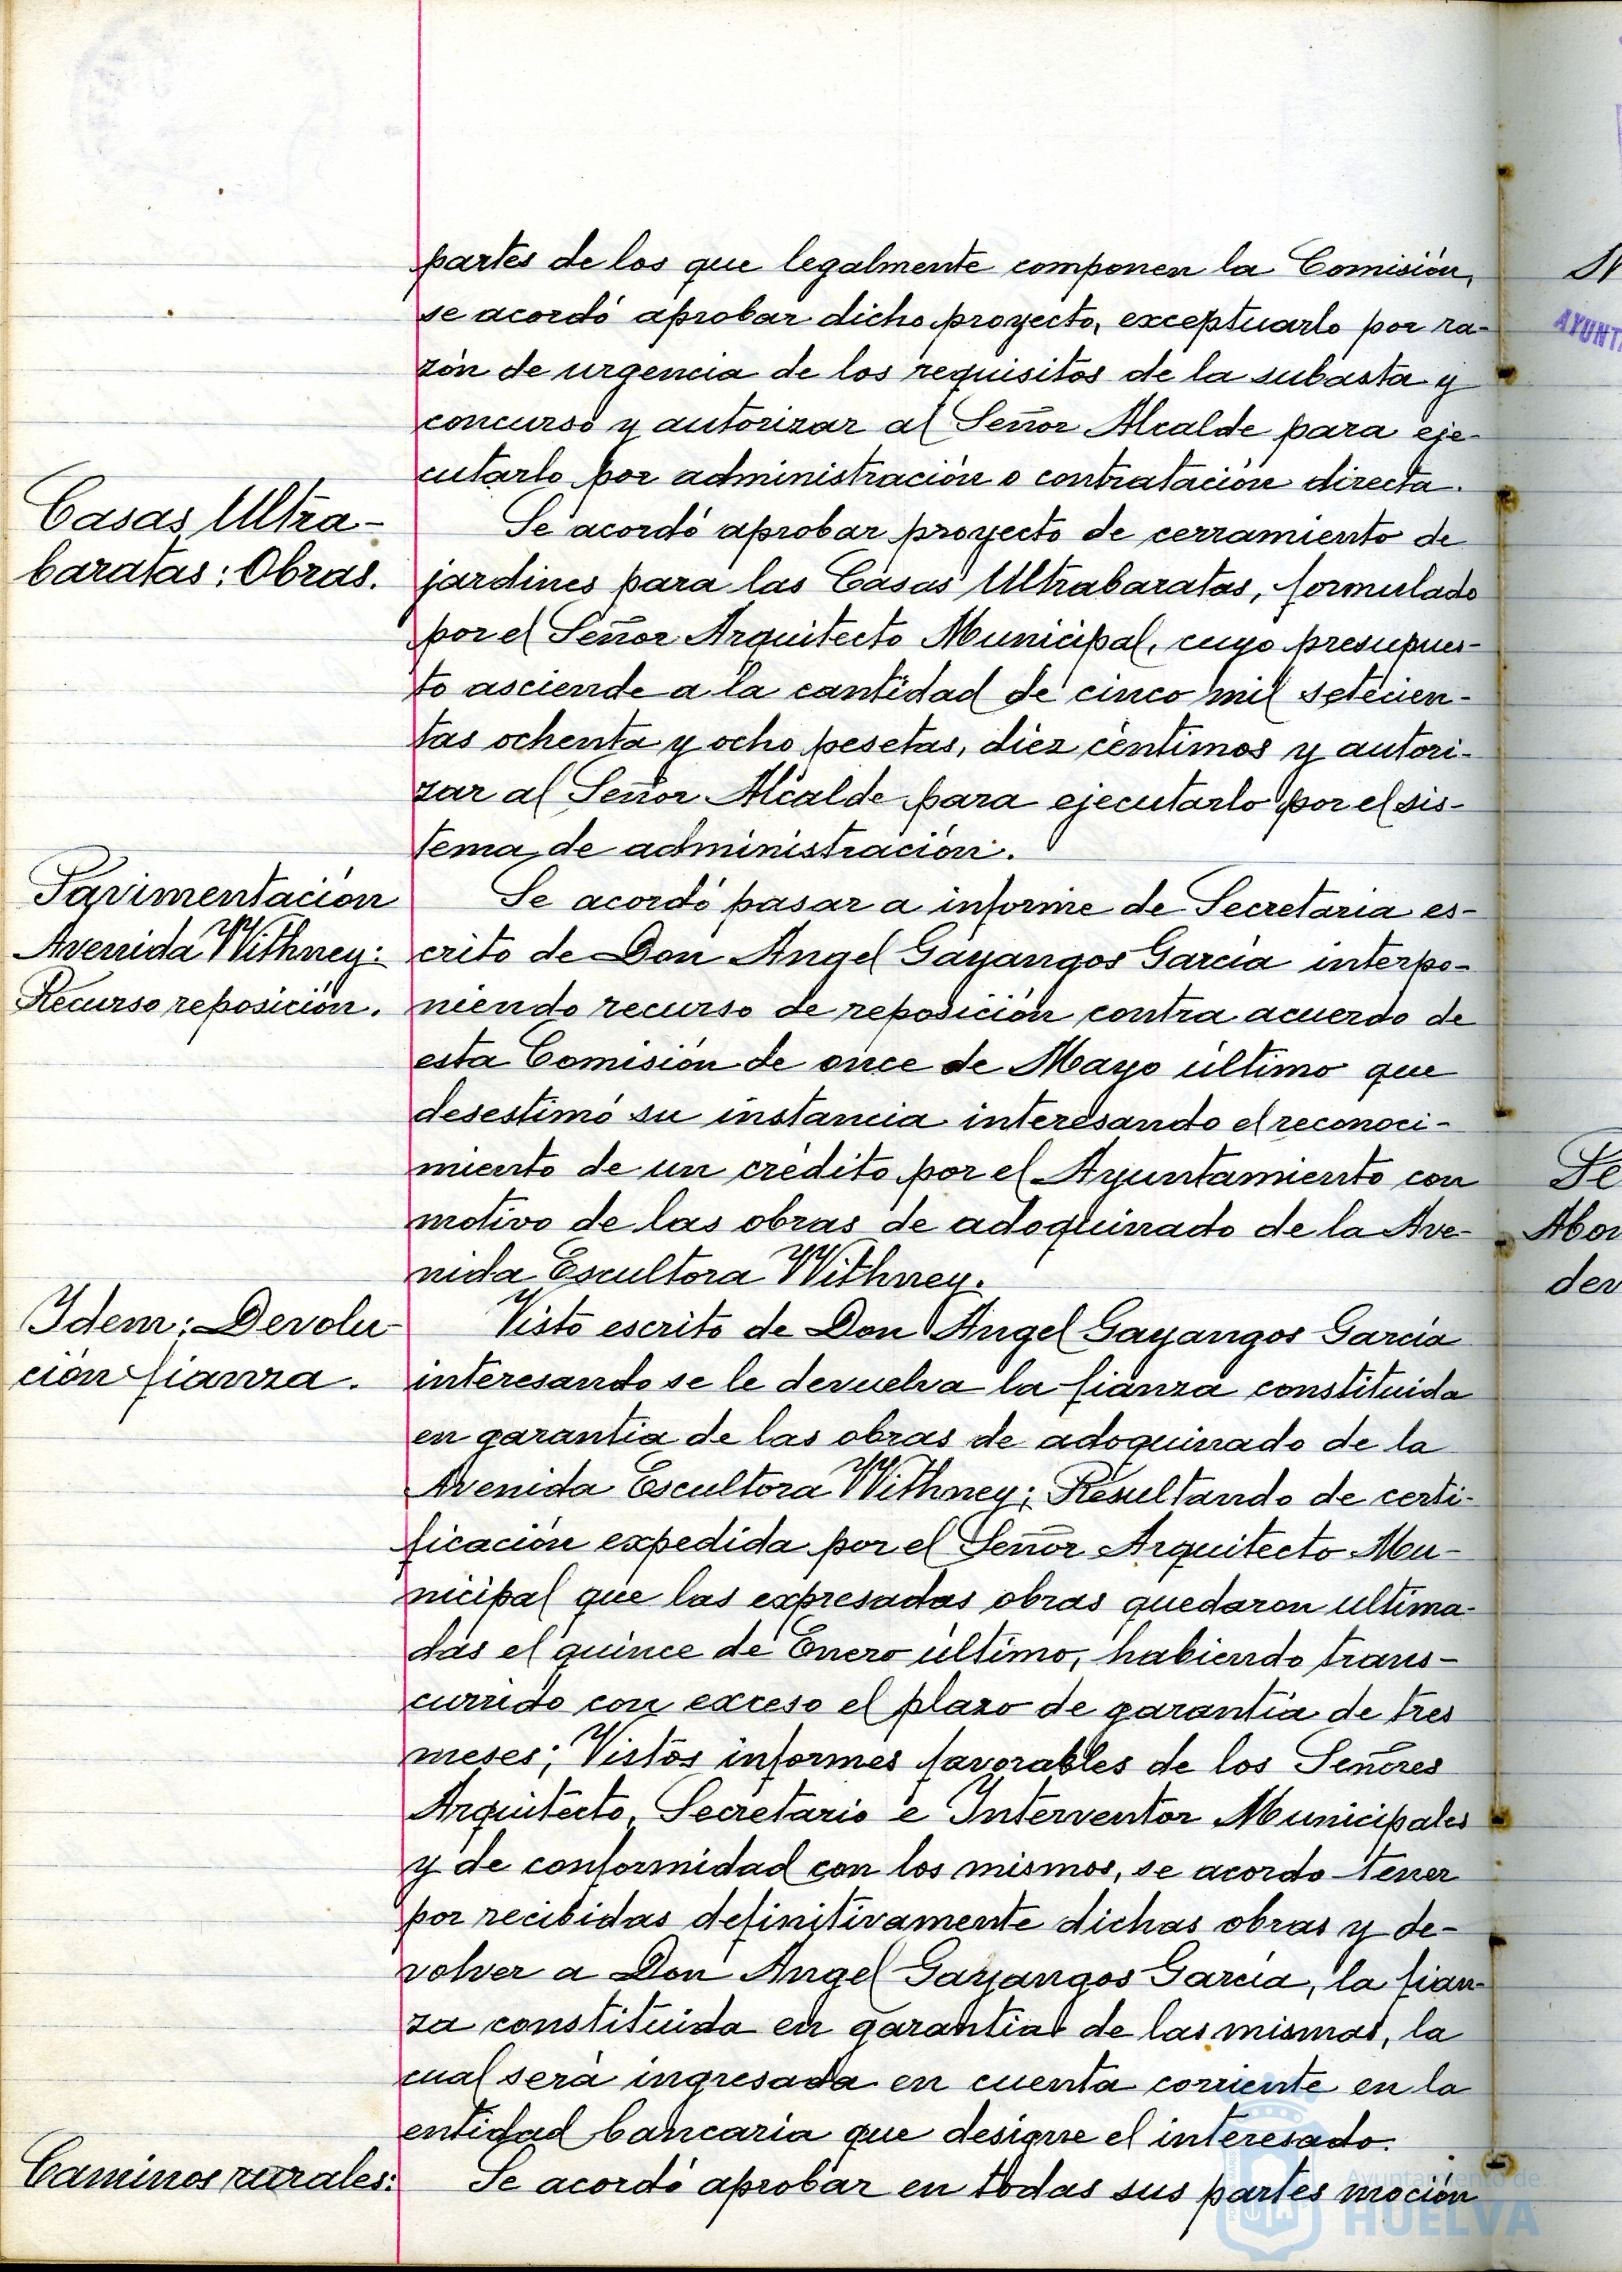 partes de los que legalmente componen la Comisión,
se acordó aprobar dicho proyecto, exceptuarlo por ra-
zón de urgencia de los requisitos de la subasta y
concurso y autorizar al Señor Alcalde para eje-
cutarlo por administración o contratación directa.
Casas Ultra-
baratas: Obras.
Se acordó aprobar proyecto de cerramiento de
jardines para las Casas Ultrabaratas, formulado
por el Señor Arquitecto Municipal, cuyo presupues-
to asciende a la cantidad de cinco mil setecien-
tas ochenta y ocho pesetas, diez céntimos y autori-
zar al Señor Alcalde para ejecutarlo por el sis-
tema de administración.
Pavimentación
Avenida Withney:
Recurso reposición.
Se acordó pasar a informe de Secretaria es-
crito de Don Angel Gayangos García interpo-
niendo recurso de reposición contra acuerdo de
esta Comisión de once de Mayo último que
desestimó su instancia interesando el reconoci-
miento de un crédito por el Ayuntamiento con
motivo de las obras de adoquinado de la Ave-
nida Escultora Withney.
Idem: Devolu-
ción fianza.
Visto escrito de Don Angel Gayangos García
interesando se le devuelva la fianza constituida
en garantía de las obras de adoquinado de la
Avenida Escultora Withney; Resultando de certi-
ficación expedida por el Señor Arquitecto Mu-
nicipal que las expresadas obras quedaron ultima-
das el quince de Enero último, habiendo trans-
currido con exceso el plazo de garantía de tres
meses; Vistos informes favorables de los Señores
Arquitecto, Secretario e Interventor Municipales
y de conformidad con los mismos, se acordo tener
por recibidas definitivamente dichas obras y de-
volver a Don Angel Gayangos García, la fian-
za constituida en garantía de las mismas, la
cual será ingresada en cuenta corriente en la
entidad bancaria que designe el interesado.
Caminos rurales:
Se acordó aprobar en todas sus partes moción
Ayuntamiento de
HUELVA